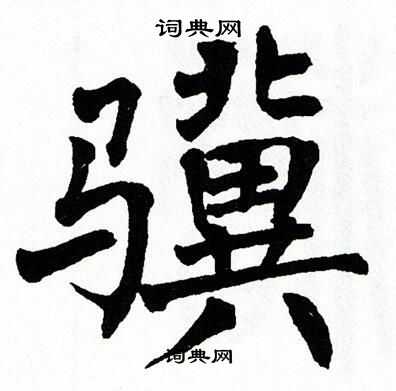 词典网
骥
词典网